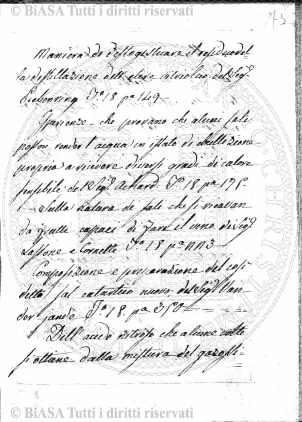 © BIASA Tutti i diritti riservati
73
Maniera di deflogisticare il residuo del
la distillazione dell' etere vitriolico del Sigr
To 18 pa 149
Sperienze che provano che alcuni sali
posson render l'acqua in istato di ebullizione
propria a ricevere diversi gradi di calore
sensibile del Sigr Achard To 18 pa 175
Sulla natura de sali che si ricavan
da frutte capaci di fare il vino de Sigri
Lassone e Cornette To 18 pa
Composizione e preparazione del cosi
detto sal catartico nuovo del Sigr Van
der To 18. pa 350
Dell' acido nitroso che alcune volte
si ottiene dalla mistura del
© BIASA Tutti i diritti riservati